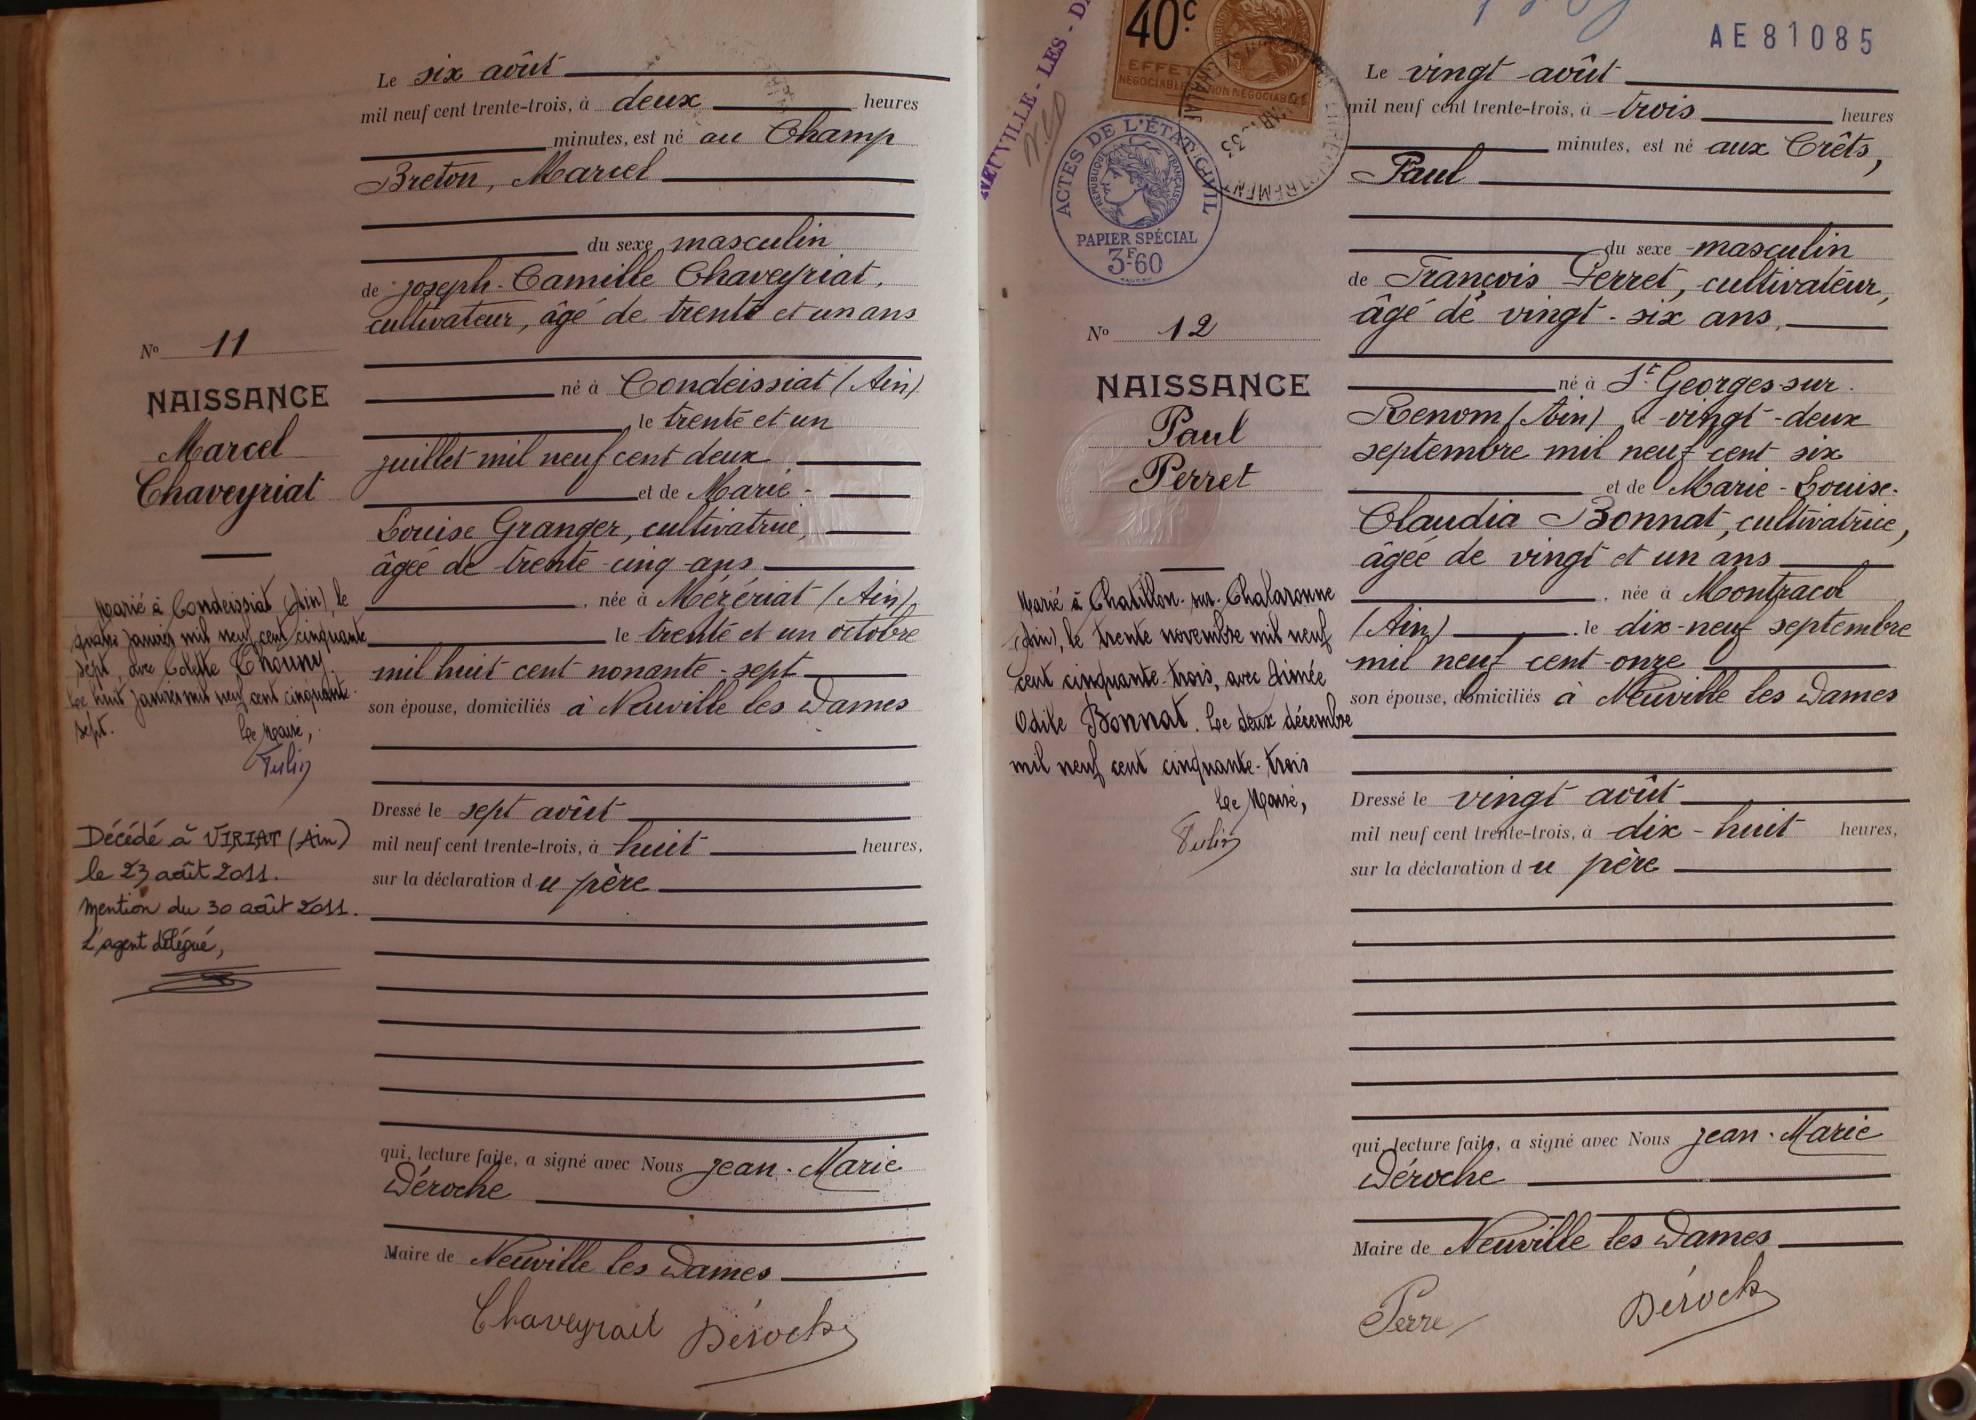 Le six août
mil neuf cent trente-trois, à deux heures
minutes, est né au Champ
Breton, Marcel
du sexe masculin
de Joseph-Camille Chaveyriat,
cultivateur, âgé de trente et un ans
né à Condeissiat (Ain)
le trente et un
juillet mil neuf cent deux
et de Marie-
Louise Granger, cultivatrice,
âgée de trente-cinq ans
, née à Mézériat (Ain)
le trente et un octobre
mil huit cent nonante-sept
son épouse, domiciliés à Neuville les Dames
Dressé le sept août
mil neuf cent trente-trois, à huit heures,
sur la déclaration du père
qui, lecture faite, a signé avec Nous Jean-Marie
Déroche
Maire de Neuville les Dames
Chaveyriat Déroche
No 11
NAISSANCE
Marcel
Chaveyriat
Marié à Condeissiat (Ain), le
quatre janvier mil neuf cent cinquante
sept, avec Odette Chouny.
Le huit janvier mil neuf cent cinquante-
sept.
Le Maire,
Décédé à VIRIAT (Ain)
le 23 août 2011.
Mention du 30 août 2011.
L'agent délégué,
NEUVILLE-LES-DA
40c
EFFET
NÉGOCIABLE OU NON NÉGOCIABLE
ENREGISTREMENT
33
ACTES DE L'ÉTAT CIVIL
RÉPUBLIQUE FRANÇAISE
PAPIER SPÉCIAL
3F60
AE81085
No 12
NAISSANCE
Paul
Perret
Marié à Chatillon-sur-Chalaronne
(Ain), le trente novembre mil neuf
cent cinquante-trois, avec Aimée
Odile Bonnat. Le deux décembre
mil neuf cent cinquante-trois
Le Maire,
Le vingt août
mil neuf cent trente-trois, à trois heures
minutes, est né aux Crêts,
Paul
du sexe masculin
de François Perret, cultivateur,
âgé de vingt-six ans,
né à St Georges-sur-
Renom (Ain) le vingt-deux
septembre mil neuf cent six
et de Marie-Louise-
Claudia Bonnat, cultivatrice,
âgée de vingt et un ans
, née à Montracol
(Ain) . le dix-neuf septembre
mil neuf cent onze
son épouse, domiciliés à Neuville les Dames
Dressé le vingt août
mil neuf cent trente-trois, à dix-huit heures,
sur la déclaration du père
qui, lecture faite, a signé avec Nous Jean-Marie
Déroche
Maire de Neuville les Dames
Perre Déroche